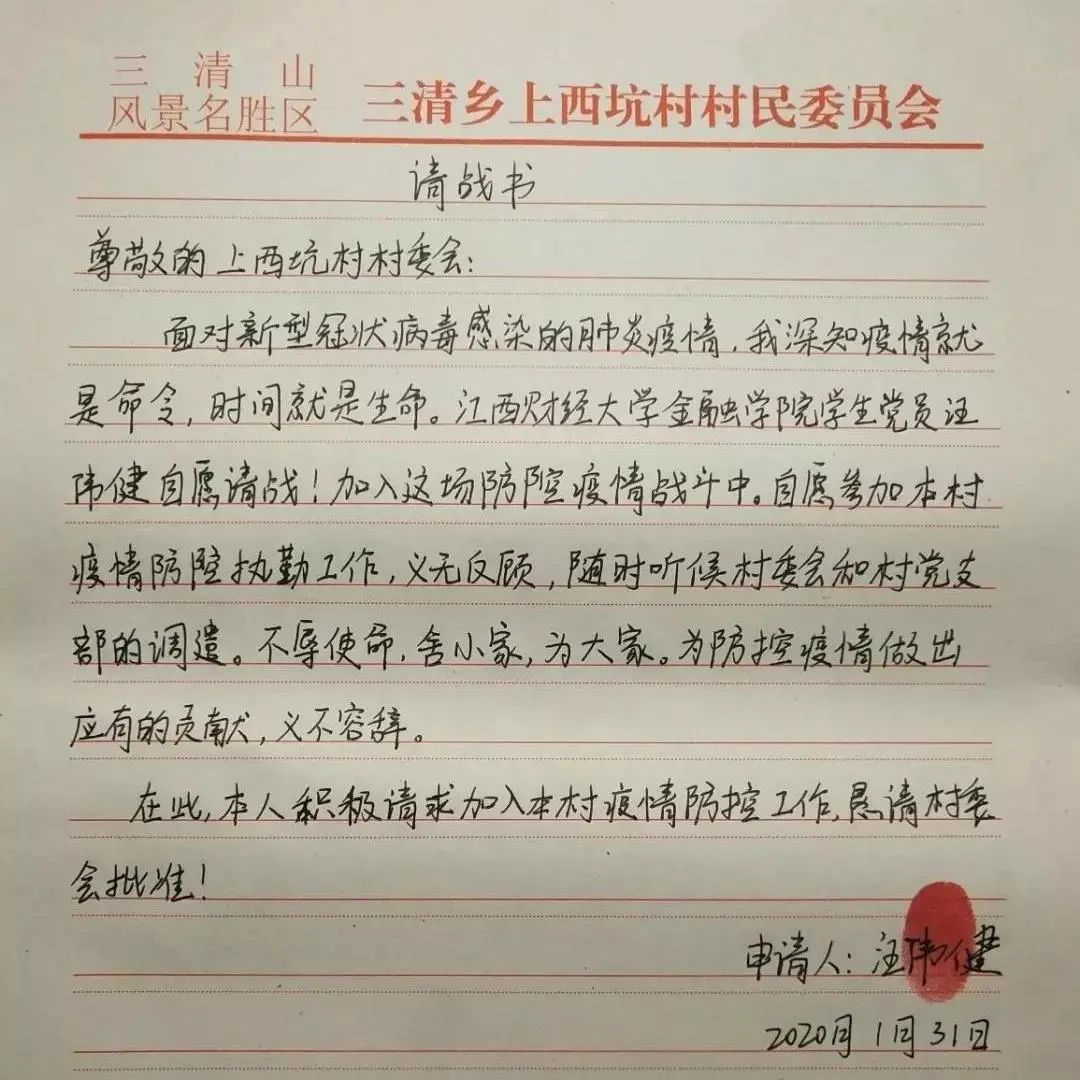 三清山
风景名胜区 三清乡上西坑村村民委员会
请战书
尊敬的上西坑村村委会:
面对新型冠状病毒感染的肺炎疫情,我深知疫情就
是命令,时间就是生命。江西财经大学金融学院学生党员汪
伟健自愿请战!加入这场防控疫情战斗中。自愿参加本村
疫情防控执勤工作,义无反顾,随时听候村委会和村党支
部的调遣。不辱使命,舍小家,为大家。为防控疫情做出
应有的贡献,义不容辞。
在此,本人积极请求加入本村疫情防控工作,恳请村委
会批准!
申请人:汪伟健
2020月1月31日